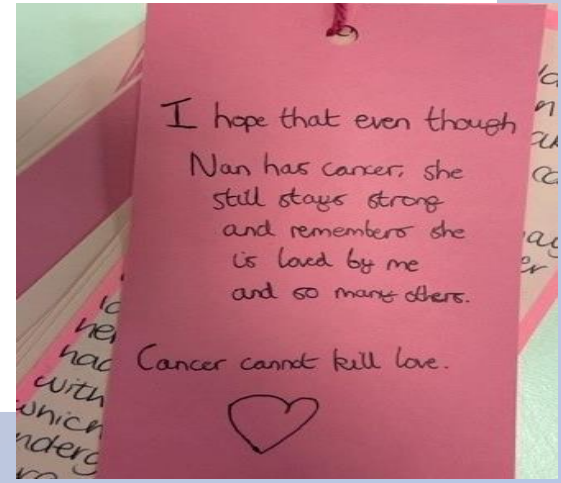 I hope that even though
Nan has cancer, she
still stays strong
and remembers she
is loved by me
and so many others.
Cancer cannot kill love.
her
had
with
which